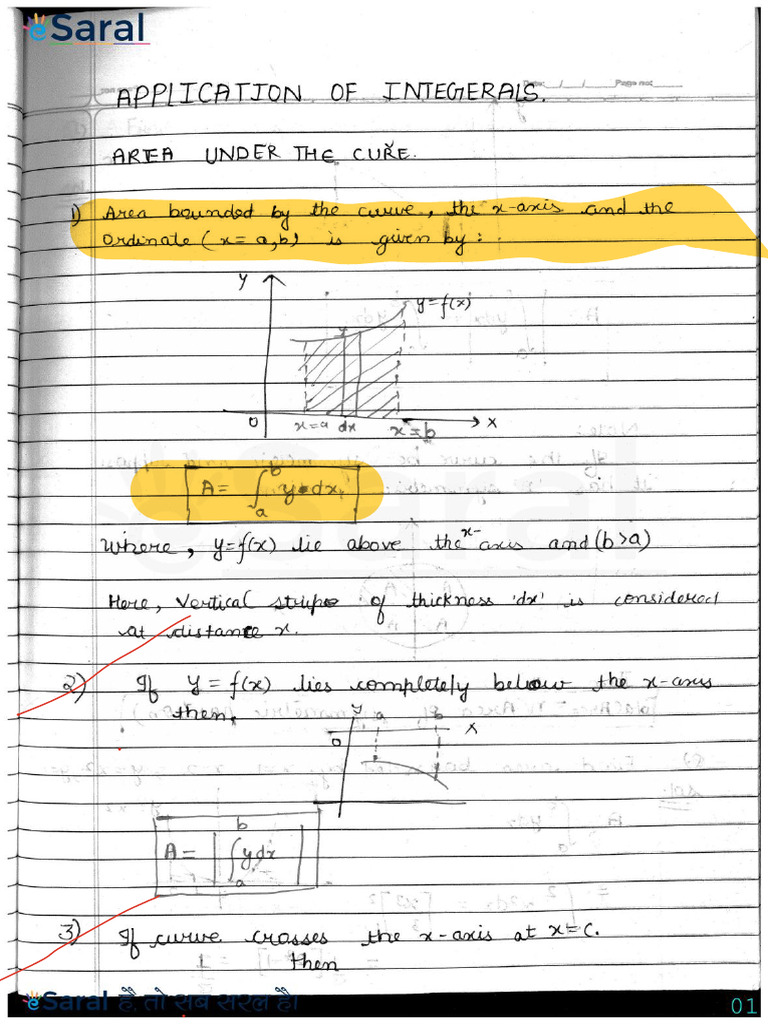 eSaral
APPLICATION OF INTEGERALS.
AREA UNDER THE CURE.
1) Area bounded by the curve, the x-axis and the
ordinate (x = a, b) is given by :
y
y = f(x)
O
x = a
dx
x = b
x
A = ∫ₐᵇ y·dx
Where, y = f(x) lie above the x-axis and (b > a)
Here, Vertical stripe of thickness 'dx' is considered
at distance x.
2) If y = f(x) lies completely below the x-axis
then,
y
a
b
x
O
A = | ∫ₐᵇ y dx |
3) If curve crosses the x-axis at x = c.
then
eSaral है, तो सब सरल है।
01